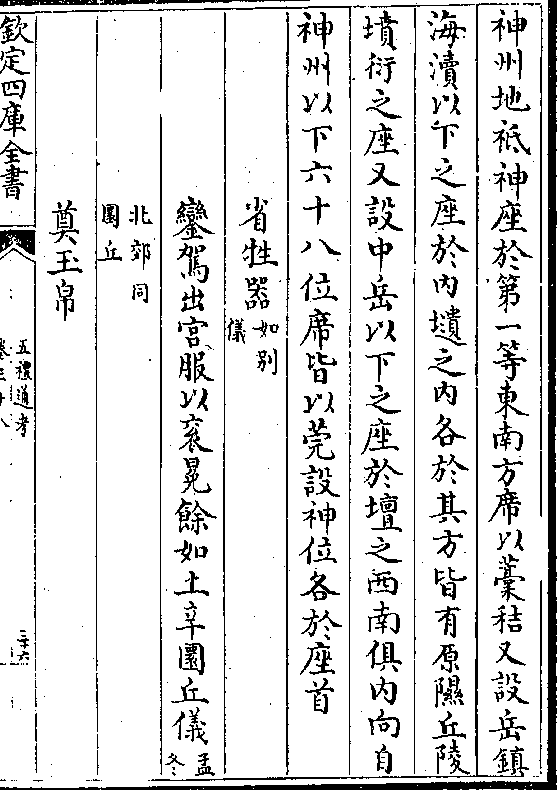 神州地祗神座於第一等東南方席以藁秸又設岳鎮
海瀆以下之座於內壝之內各於其方皆有原隰丘陵
墳衍之座又設中岳以下之座於壇之西南俱內向自
神州以下六十八位席皆以莞設神位各於座首
省牲器如別儀
鑾駕出宮服以衮冕餘如上辛圜丘儀孟冬
北郊同圜丘
奠玉帛
欽定四庫全書
五禮通考
卷三十八
三十六